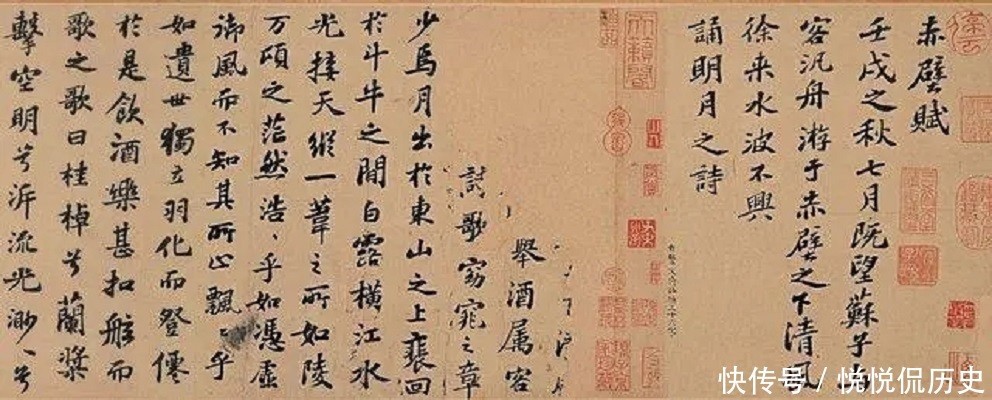 赤壁賦
壬戌之秋七月既望蘇子與
客汎舟游于赤壁之下清風
徐来水波不興
誦明月之詩
舉酒属客
歌窈窕之章
少焉月出於東山之上裵回
於斗牛之間白露横江水
光接天縱一葦之所如陵
万頃之茫然浩〻乎如馮虛
御風而不知其所止飄〻乎
如遺世獨立羽化而登僊
於是飲酒樂甚扣舷而
歌之歌曰桂棹兮蘭槳
擊空明兮泝流光渺〻兮
快传号 / 悦悦侃历史